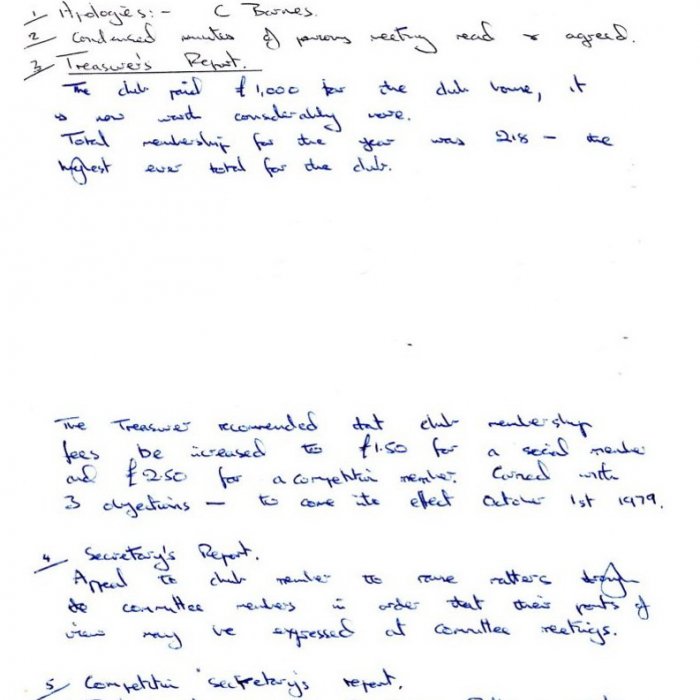 1 Apologies:- C Barnes.
2 Condensed minutes of previous meeting read & agreed.
3 Treasurer's Report.
The club paid £1,000 for the club house, it
is now worth considerably more.
Total membership for the year was 218 - the
highest ever total for the club.
The Treasurer recommended that club membership
fees be increased to £1.50 for a social member
and £2.50 for a competitive member. Carried with
3 objections - to come into effect October 1st 1979.
4 Secretary's Report.
Appeal to club member to raise matters through
the committee members in order that their points of
view may be expressed at committee meetings.
5 Competition secretary's report.